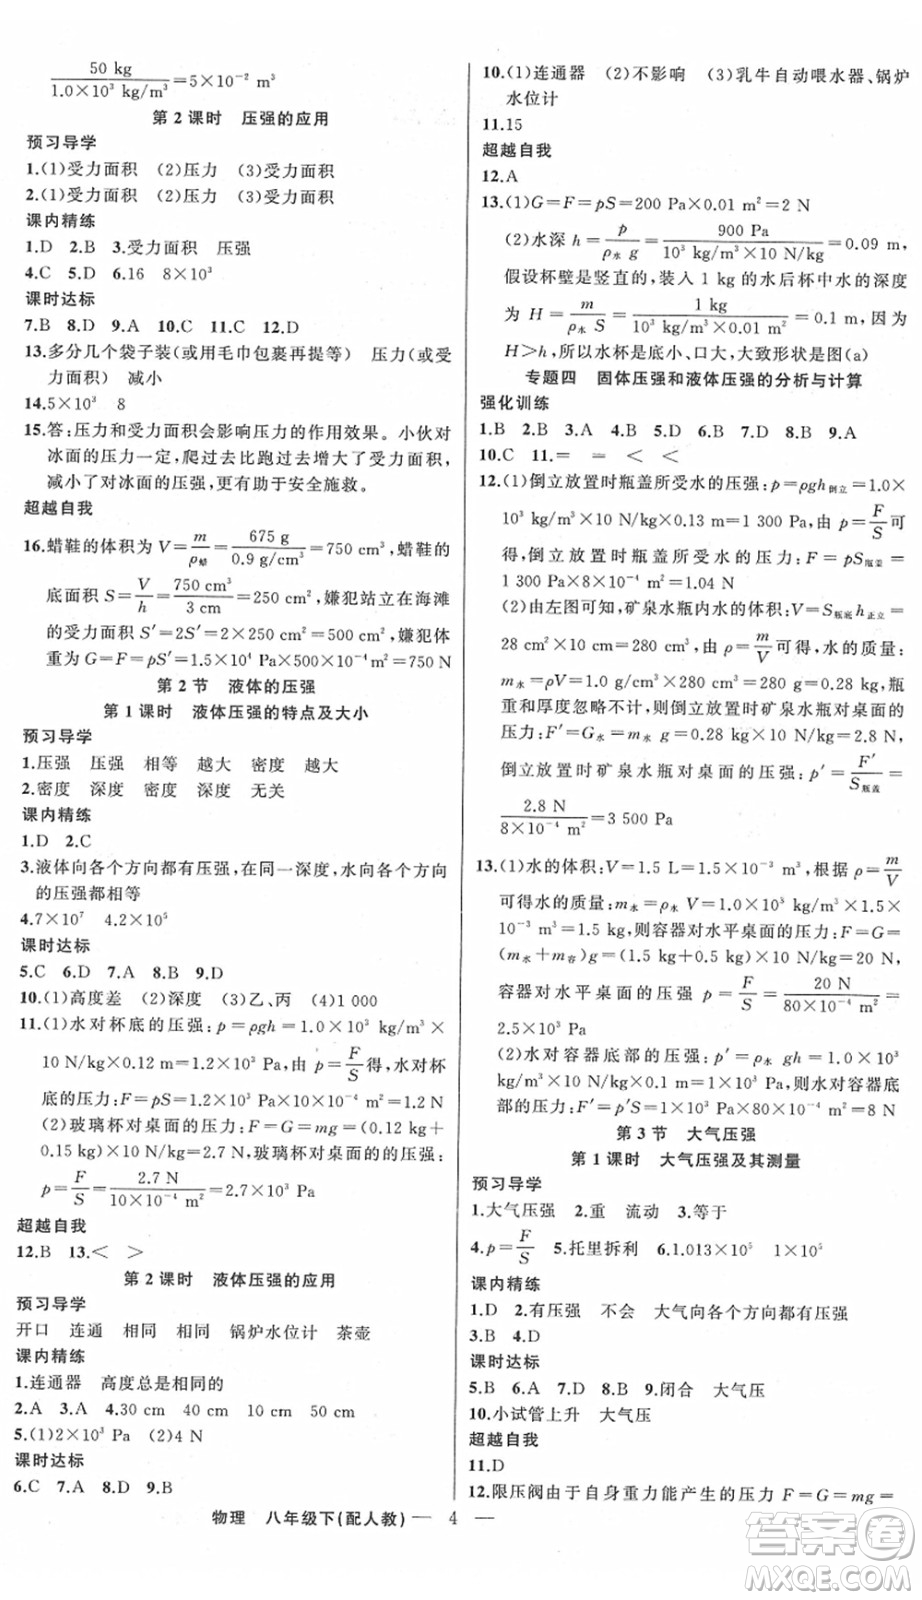 50 kg / 1.0×10³ kg/m³ =5×10⁻² m³
第 2 课时　压强的应用
预习导学
1.(1)受力面积　(2)压力　(3)受力面积
2.(1)受力面积　(2)压力　(3)受力面积
课内精练
1.D　2.B　3.受力面积　压强
4.C　5.D　6.16　8×10³
课时达标
7.B　8.D　9.A　10.C　11.C　12.D
13.多分几个袋子装(或用毛巾包裹再提等)　压力(或受
力面积)　减小
14.5×10³　8
15.答:压力和受力面积会影响压力的作用效果。小伙对
冰面的压力一定,爬过去比跑过去增大了受力面积,
减小了对冰面的压强,更有助于安全施救。
超越自我
16.蜡鞋的体积为 V=m/ρ蜡=675 g/0.9 g/cm³=750 cm³,蜡鞋的
底面积 S=V/h=750 cm³/3 cm=250 cm²,嫌犯站立在海滩
的受力面积 S′=2S′=2×250 cm²=500 cm²,嫌犯体
重为 G=F=pS′=1.5×10⁴ Pa×500×10⁻⁴ m²=750 N
第 2 节　液体的压强
第 1 课时　液体压强的特点及大小
预习导学
1.压强　压强　相等　越大　密度　越大
2.密度　深度　密度　深度　无关
课内精练
1.D　2.C
3.液体向各个方向都有压强,在同一深度,水向各个方向
的压强都相等
4.7×10⁷　4.2×10⁵
课时达标
5.C　6.D　7.A　8.B　9.D
10.(1)高度差　(2)深度　(3)乙、丙　(4)1 000
11.(1)水对杯底的压强:p=ρgh=1.0×10³ kg/m³×
10 N/kg×0.12 m=1.2×10³ Pa,由 p=F/S得,水对杯
底的压力:F=pS=1.2×10³ Pa×10×10⁻⁴ m²=1.2 N
(2)玻璃杯对桌面的压力:F=G=mg=(0.12 kg+
0.15 kg)×10 N/kg=2.7 N,玻璃杯对桌面的压强:
p=F/S=2.7 N/10×10⁻⁴ m²=2.7×10³ Pa
超越自我
12.B　13.<　>
第 2 课时　液体压强的应用
预习导学
开口　连通　相同　相同　锅炉水位计　茶壶
课内精练
1.连通器　高度总是相同的
2.A　3.A　4.30 cm　40 cm　10 cm　50 cm
5.(1)2×10³ Pa　(2)4 N
课时达标
6.C　7.A　8.D　9.B
10.(1)连通器　(2)不影响　(3)乳牛自动喂水器、锅炉
水位计
11.15
超越自我
12.A
13.(1)G=F=pS=200 Pa×0.01 m²=2 N
(2)水深 h=p/ρ水 g=900 Pa/10³ kg/m³×10 N/kg=0.09 m,
假设杯壁是竖直的,装入 1 kg 的水后杯中水的深度
为 H=m/ρ水 S=1 kg/10³ kg/m³×0.01 m²=0.1 m,因为
H>h,所以水杯是底小、口大,大致形状是图(a)
专题四　固体压强和液体压强的分析与计算
强化训练
1.B　2.B　3.A　4.B　5.D　6.B　7.D　8.B　9.A
10.C　11.=　=　<　<
12.(1)倒立放置时瓶盖所受水的压强:p=ρgh倒立=1.0×
10³ kg/m³×10 N/kg×0.13 m=1 300 Pa,由 p=F/S可
得,倒立放置时瓶盖所受水的压力:F=pS瓶盖=
1 300 Pa×8×10⁻⁴ m²=1.04 N
(2)由左图可知,矿泉水瓶内水的体积:V=S瓶底h正立=
28 cm²×10 cm=280 cm³,由 ρ=m/V可得,水的质量:
m水=ρV=1.0 g/cm³×280 cm³=280 g=0.28 kg,瓶
重和厚度忽略不计,则倒立放置时矿泉水瓶对桌面的
压力:F′=G水=m水 g=0.28 kg×10 N/kg=2.8 N,
倒立放置时矿泉水瓶对桌面的压强:p′=F′/S瓶盖=
2.8 N/8×10⁻⁴ m²=3 500 Pa
13.(1)水的体积:V=1.5 L=1.5×10⁻³ m³,根据 ρ=m/V
可得水的质量:m水=ρ水 V=1.0×10³ kg/m³×1.5×
10⁻³ m³=1.5 kg,则容器对水平桌面的压力:F=G=
(m水+m容)g=(1.5 kg+0.5 kg)×10 N/kg=20 N,
容器对水平桌面的压强 p=F/S=20 N/80×10⁻⁴ m²=
2.5×10³ Pa
(2)水对容器底部的压强:p′=ρ水 gh=1.0×10³
kg/m³×10 N/kg×0.1 m=1×10³ Pa,则水对容器底
部的压力:F′=p′S=1×10³ Pa×80×10⁻⁴ m²=8 N
第 3 节　大气压强
第 1 课时　大气压强及其测量
预习导学
1.大气压强　2.重　流动　3.等于
4.p=F/S　5.托里拆利　6.1.013×10⁵　1×10⁵
课内精练
1.D　2.有压强　不会　大气向各个方向都有压强
3.B　4.D
课时达标
5.B　6.B　7.D　8.D　9.闭合　大气压
10.小试管上升　大气压
超越自我
11.D
12.限压阀由于自身重力能产生的压力 F=G=mg=
物理　八年级下(配人教)　— 4 —
答案圈
MXQE.COM